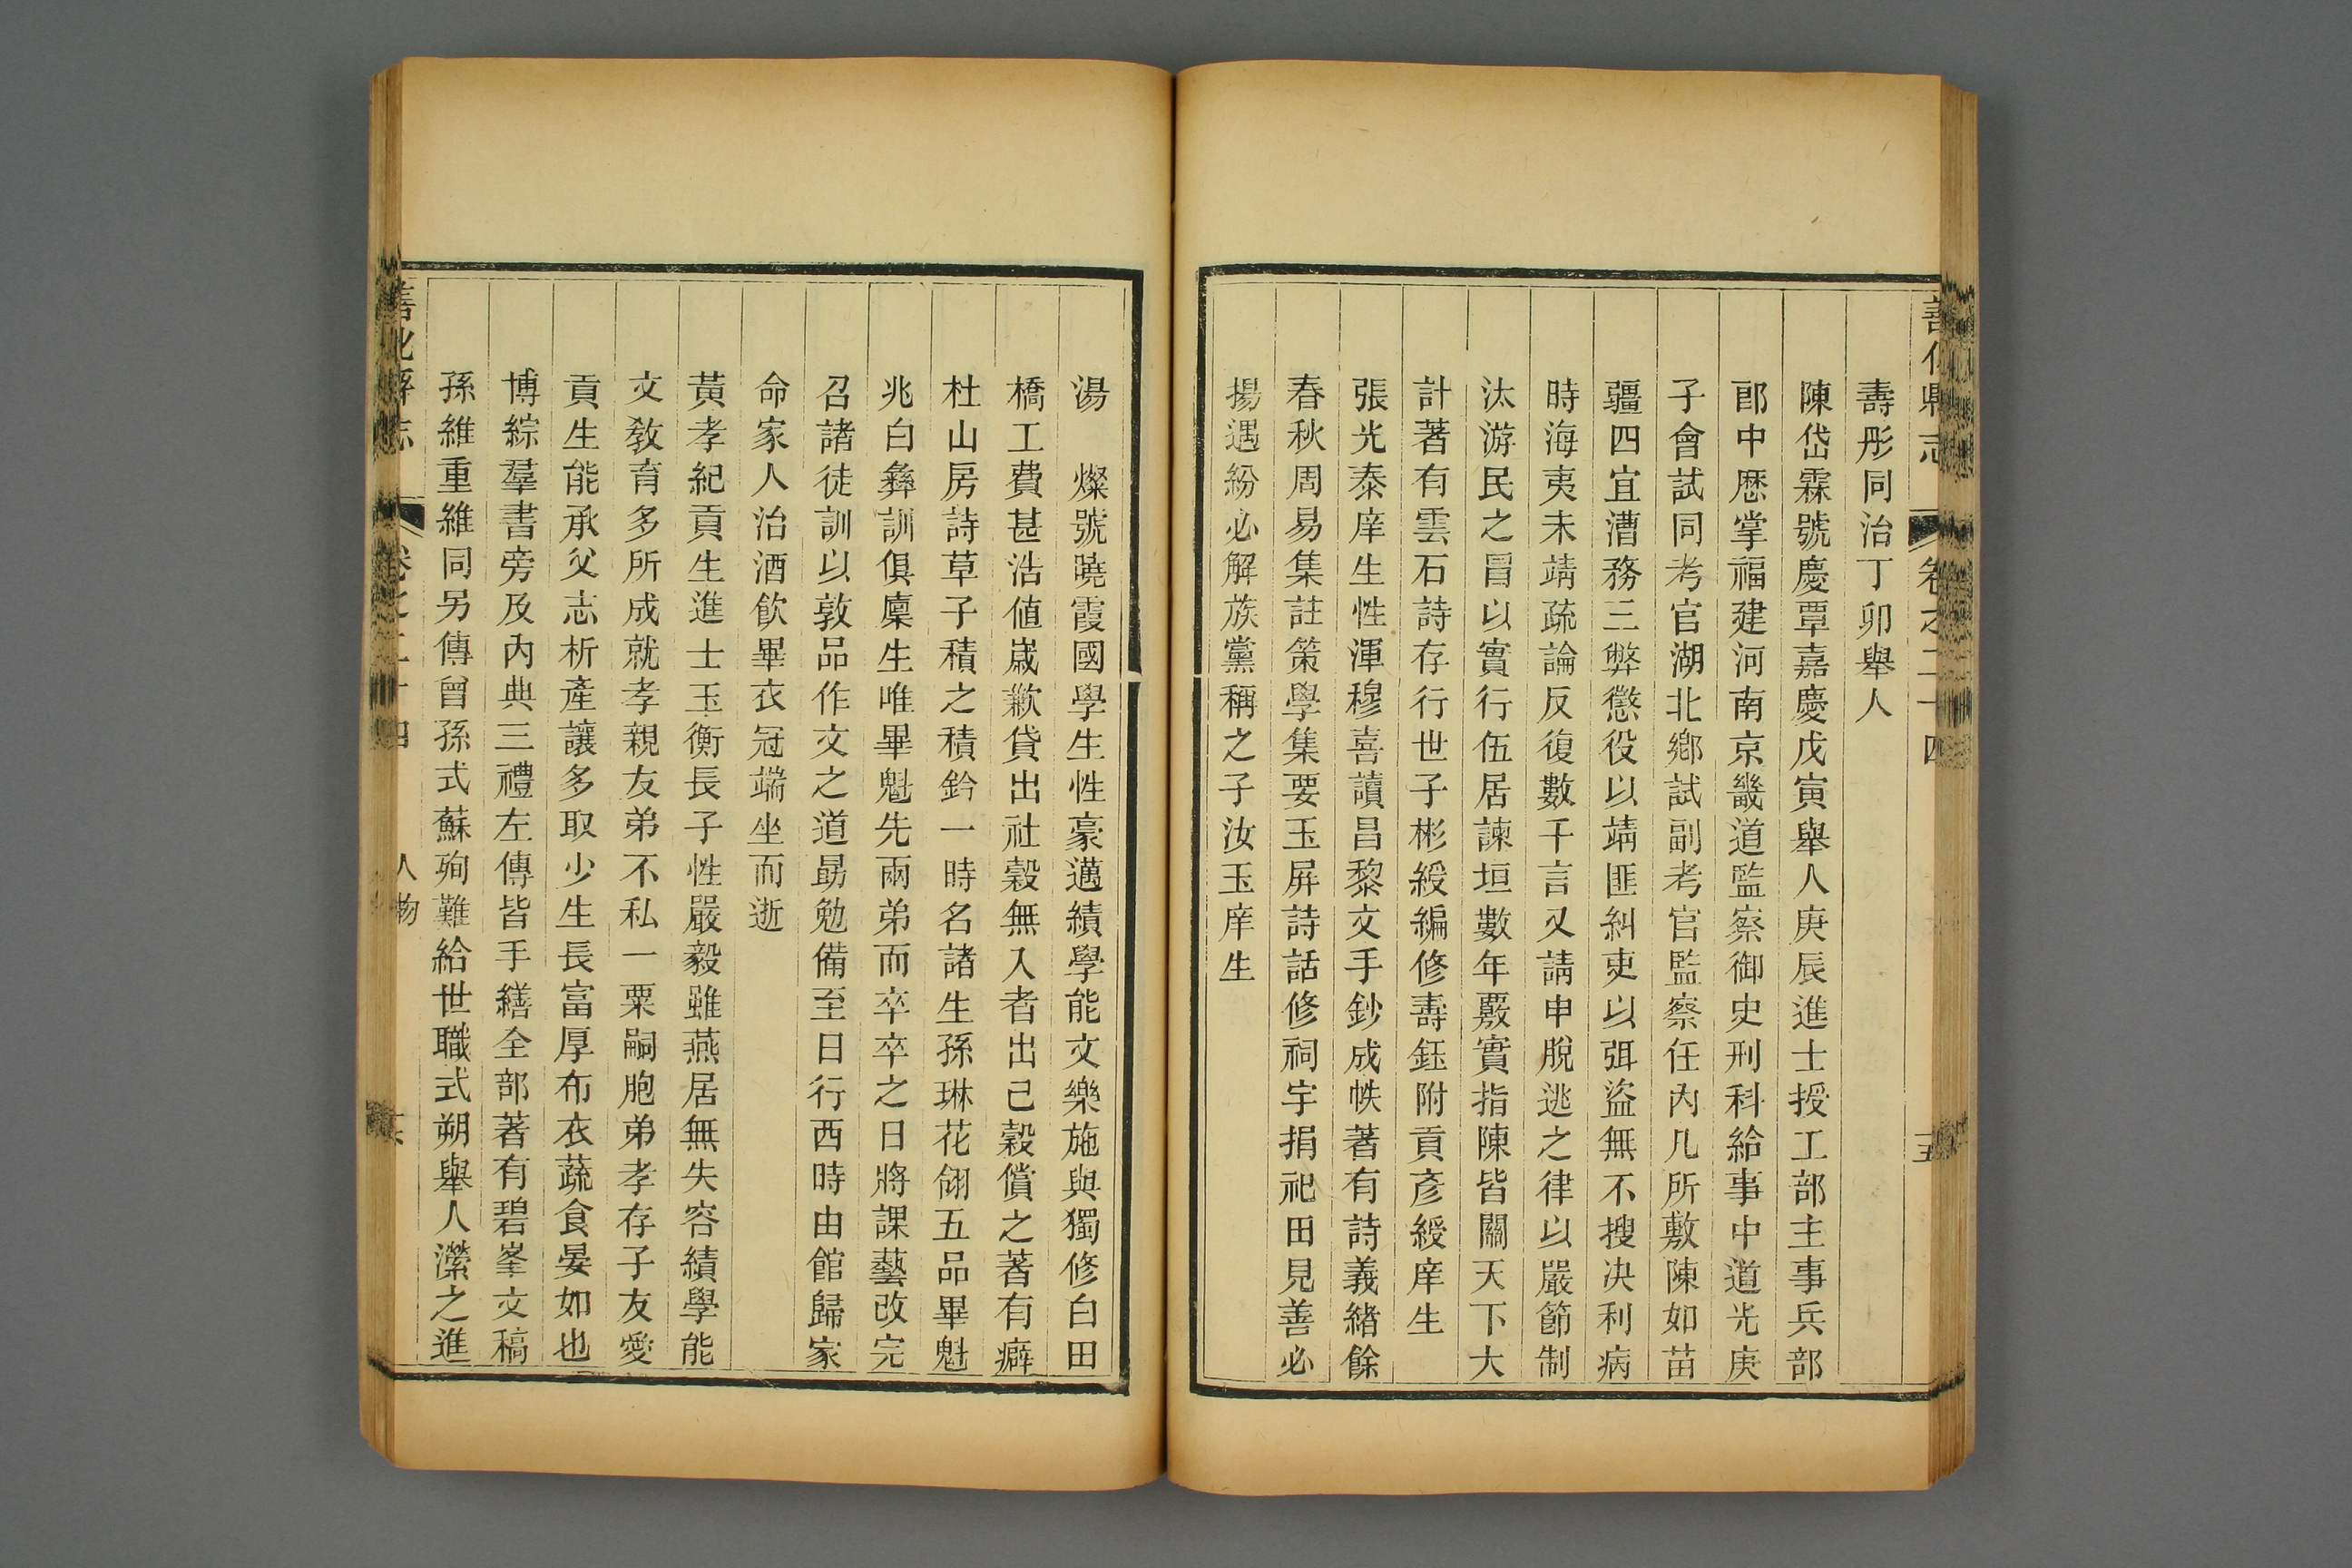 善化縣志 卷之二十四 五
壽彤同治丁卯舉人
陳岱霖號慶覃嘉慶戊寅舉人庚辰進士授工部主事兵部
郎中歷掌福建河南京畿道監察御史刑科給事中道光庚
子會試同考官湖北鄉試副考官監察任內凡所敷陳如苗
疆四宜漕務三弊懲役以靖匪糾吏以弭盜無不搜决利病
時海夷未靖疏論反復數千言又請申脫逃之律以嚴節制
汰游民之冒以實行伍居諫垣數年覈實指陳皆關天下大
計著有雲石詩存行世子彬綬編修壽鈺附貢彥綬庠生
張光泰庠生性渾穆喜讀昌黎文手鈔成帙著有詩義緒餘
春秋周易集註策學集要玉屏詩話修祠宇捐祀田見善必
揚遇紛必解族黨稱之子汝玉庠生
湯　燦號曉霞國學生性豪邁績學能文樂施與獨修白田
橋工費甚浩値嵗歉貸出社穀無入者出己穀償之著有癖
杜山房詩草子積之積鈐一時名諸生孫琳花翎五品畢魁
兆白彝訓俱廩生唯畢魁先兩弟而卒卒之日將課藝改完
召諸徒訓以敦品作文之道勗勉備至日行西時由館歸家
命家人治酒飮畢衣冠端坐而逝
黃孝紀貢生進士玉衡長子性嚴毅雖燕居無失容績學能
文敎育多所成就孝親友弟不私一粟嗣胞弟孝存子友愛
貢生能承父志析產讓多取少生長富厚布衣蔬食晏如也
博綜羣書旁及內典三禮左傳皆手繕全部著有碧峯文稿
孫維重維同另傳曾孫式蘇殉難給世職式朔舉人濚之進
善化縣志 卷之二十四 人物